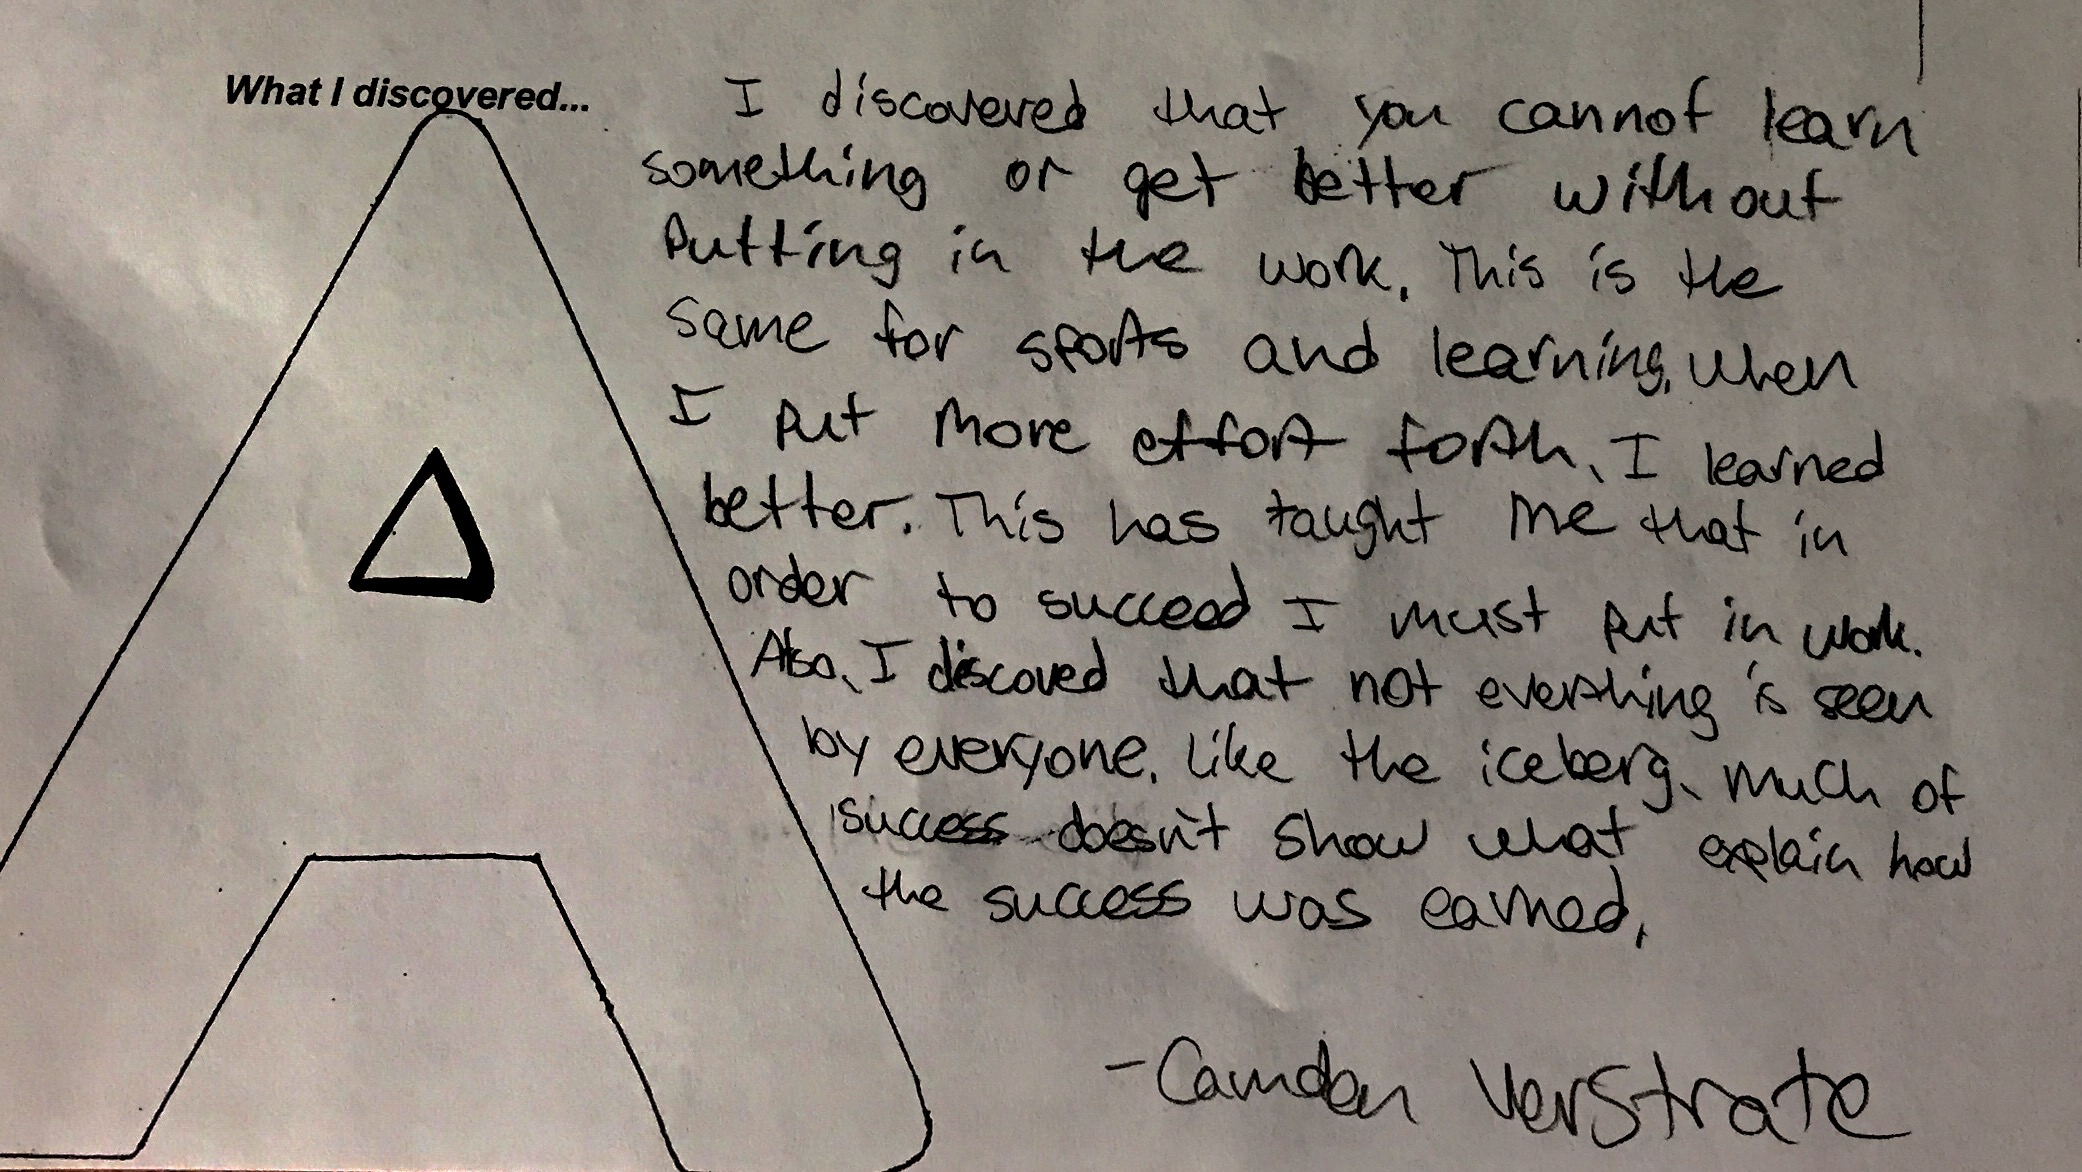 What I discovered...
I discovered that you cannot learn
something or get better without
Putting in the work. This is the
same for sports and learning. When
I put more effort forth, I learned
better. This has taught me that in
order to succeed I must put in work.
Also, I discoved that not everthing is seen
by everyone. Like the iceberg, much of
success doesn't show what explain how
the success was earned.
-Camden Verstrate